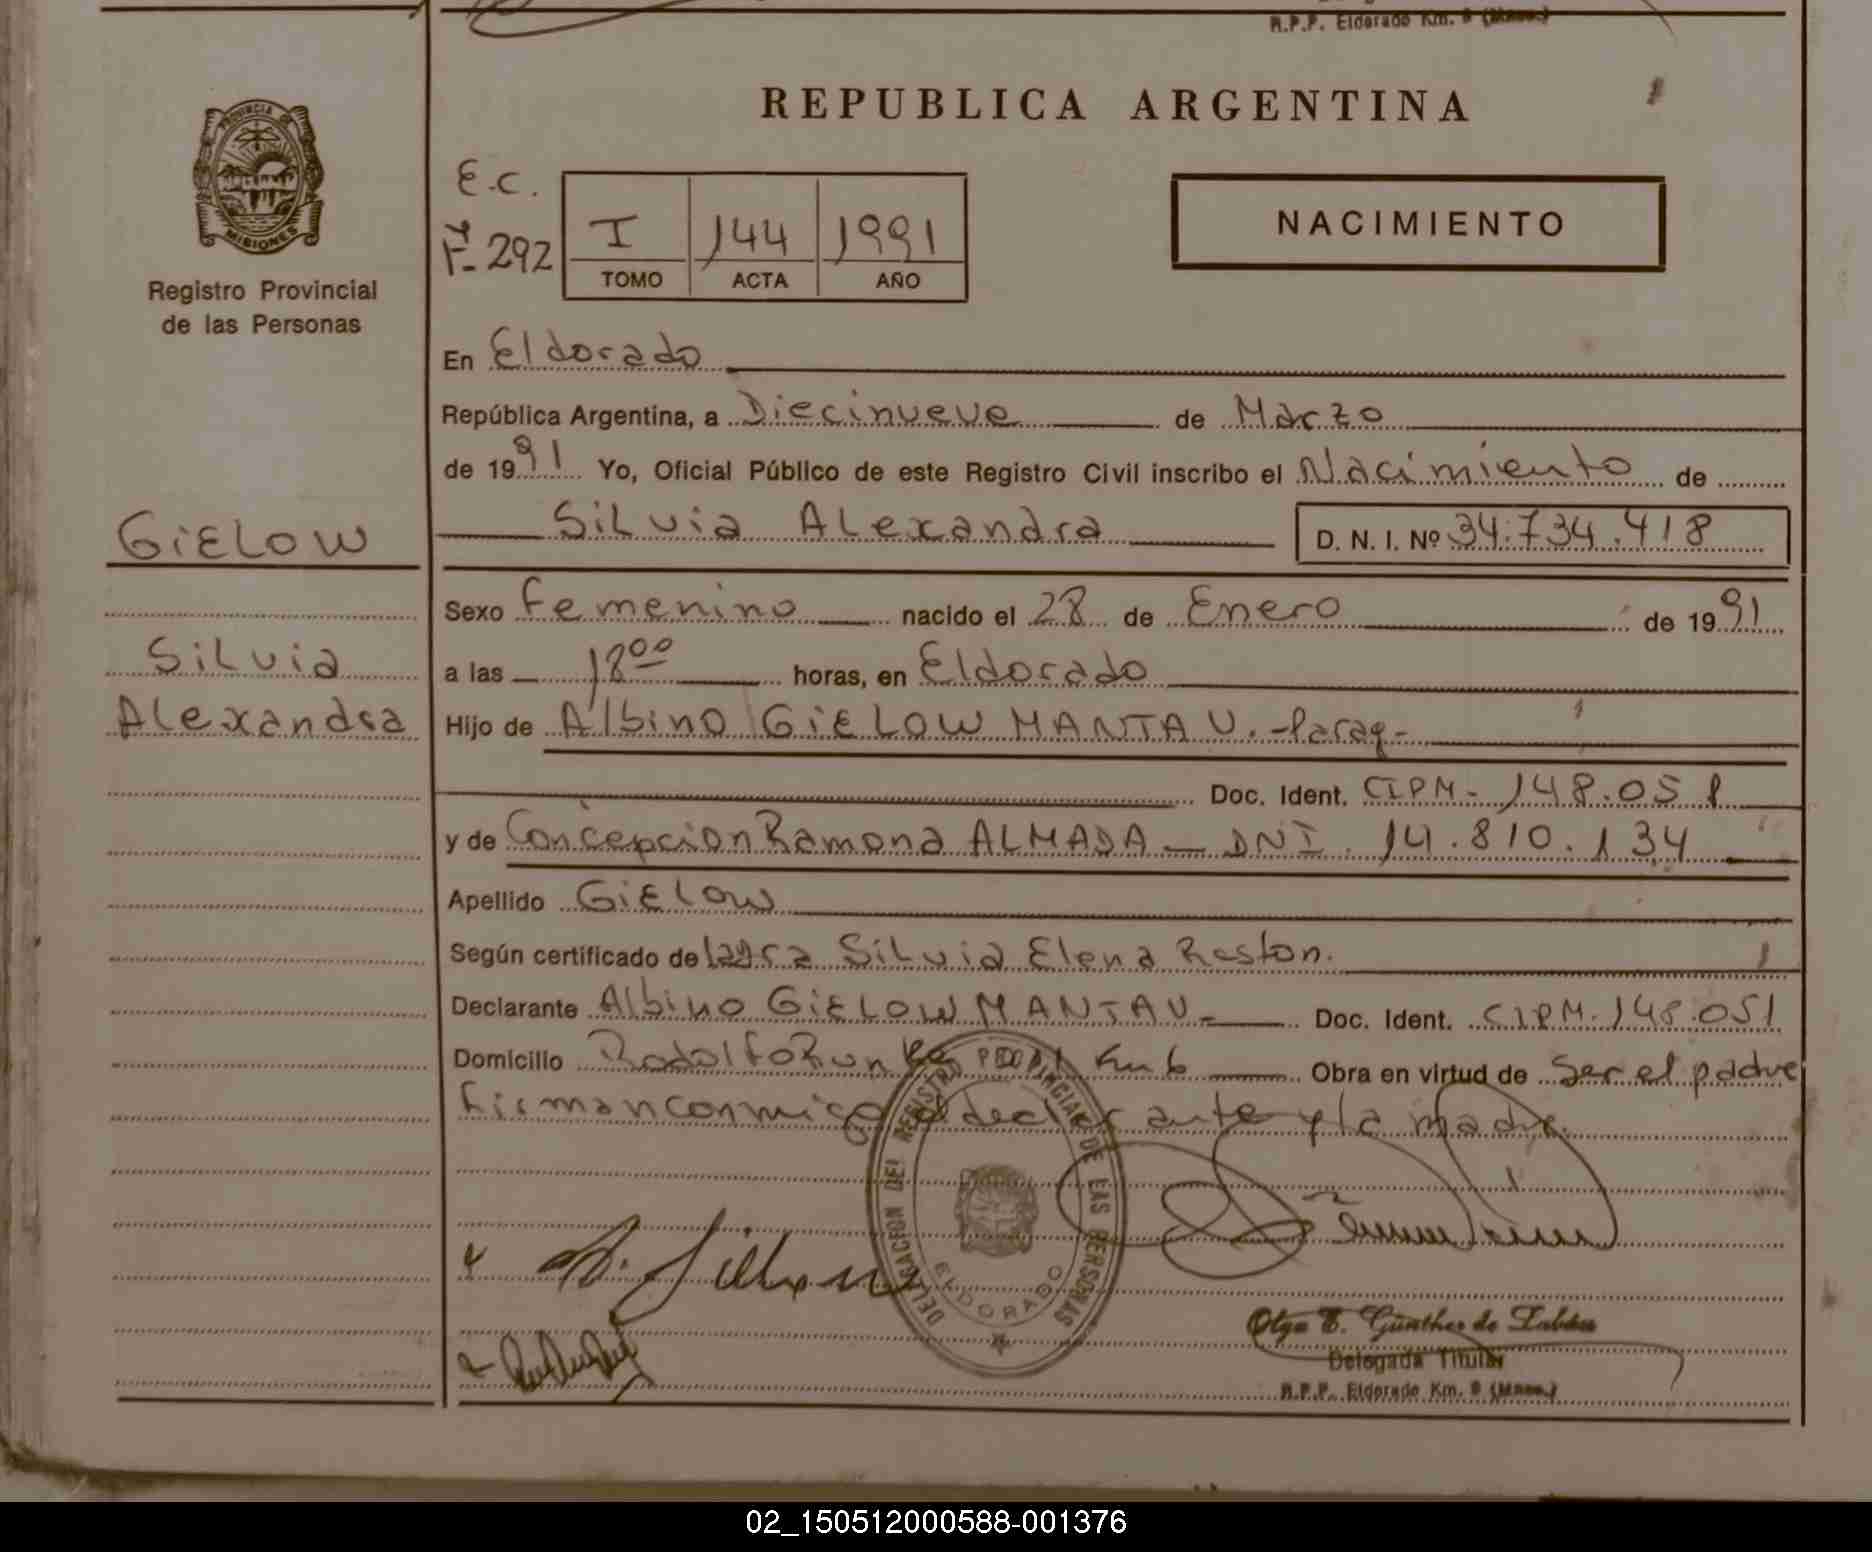 R.P.P. Eldorado Km. 9 (Mnes.)
REPUBLICA ARGENTINA
PROVINCIA DE
MISIONES
Registro Provincial
de las Personas
E.C.
Fº 292
I 144 1991
TOMO ACTA AÑO
NACIMIENTO
En Eldorado
República Argentina, a Diecinueve de Marzo
de 1991 Yo, Oficial Público de este Registro Civil inscribo el Nacimiento de
Silvia Alexandra D. N. I. Nº 34.734.418
GIELOW
Silvia
Alexandra
Sexo Femenino nacido el 28 de Enero de 1991
a las 18 00 horas, en Eldorado
Hijo de Albino GIELOW MANTAU. -Parag-
Doc. Ident. CIPM- 148.051
y de Concepcion Ramona ALMADA - DNI. 14.810.134
Apellido GIELOW
Según certificado de Silvia Elena Reston.
Declarante Albino GIELOW MANTAU- Doc. Ident. CIPM. 148.051
Domicilio Km 6 Obra en virtud de Ser el padre
Firman conmigo el declarante y la madre.
DELEGACION DEL REGISTRO PROVINCIAL DE LAS PERSONAS
ELDORADO
Olga E. Günther de
Delegada Titular
R.P.P. Eldorado Km. 9 (Mnes.)
02_150512000588-001376